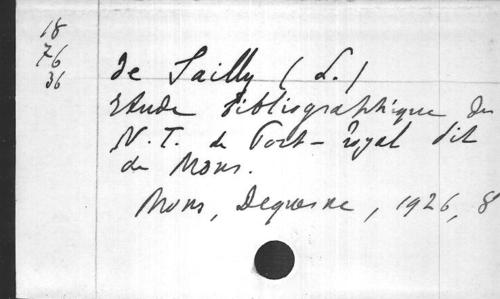 18
76
36
de Sailly (L.)
Etude bibliographique du
N. T. de Port-royal dit
de Mons.
Mons, Dequesne, 1926, 8